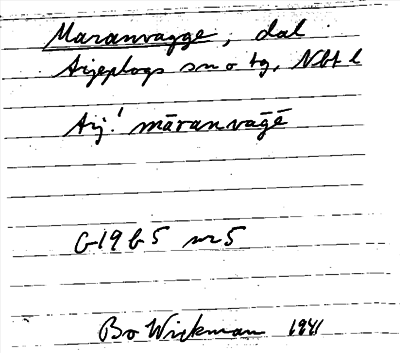 Maranvagge, dal
Arjeplogs sn o tg, Nbt l
Arj.! māranvāgē
G19b5 nr5
Bo Wickman 1941